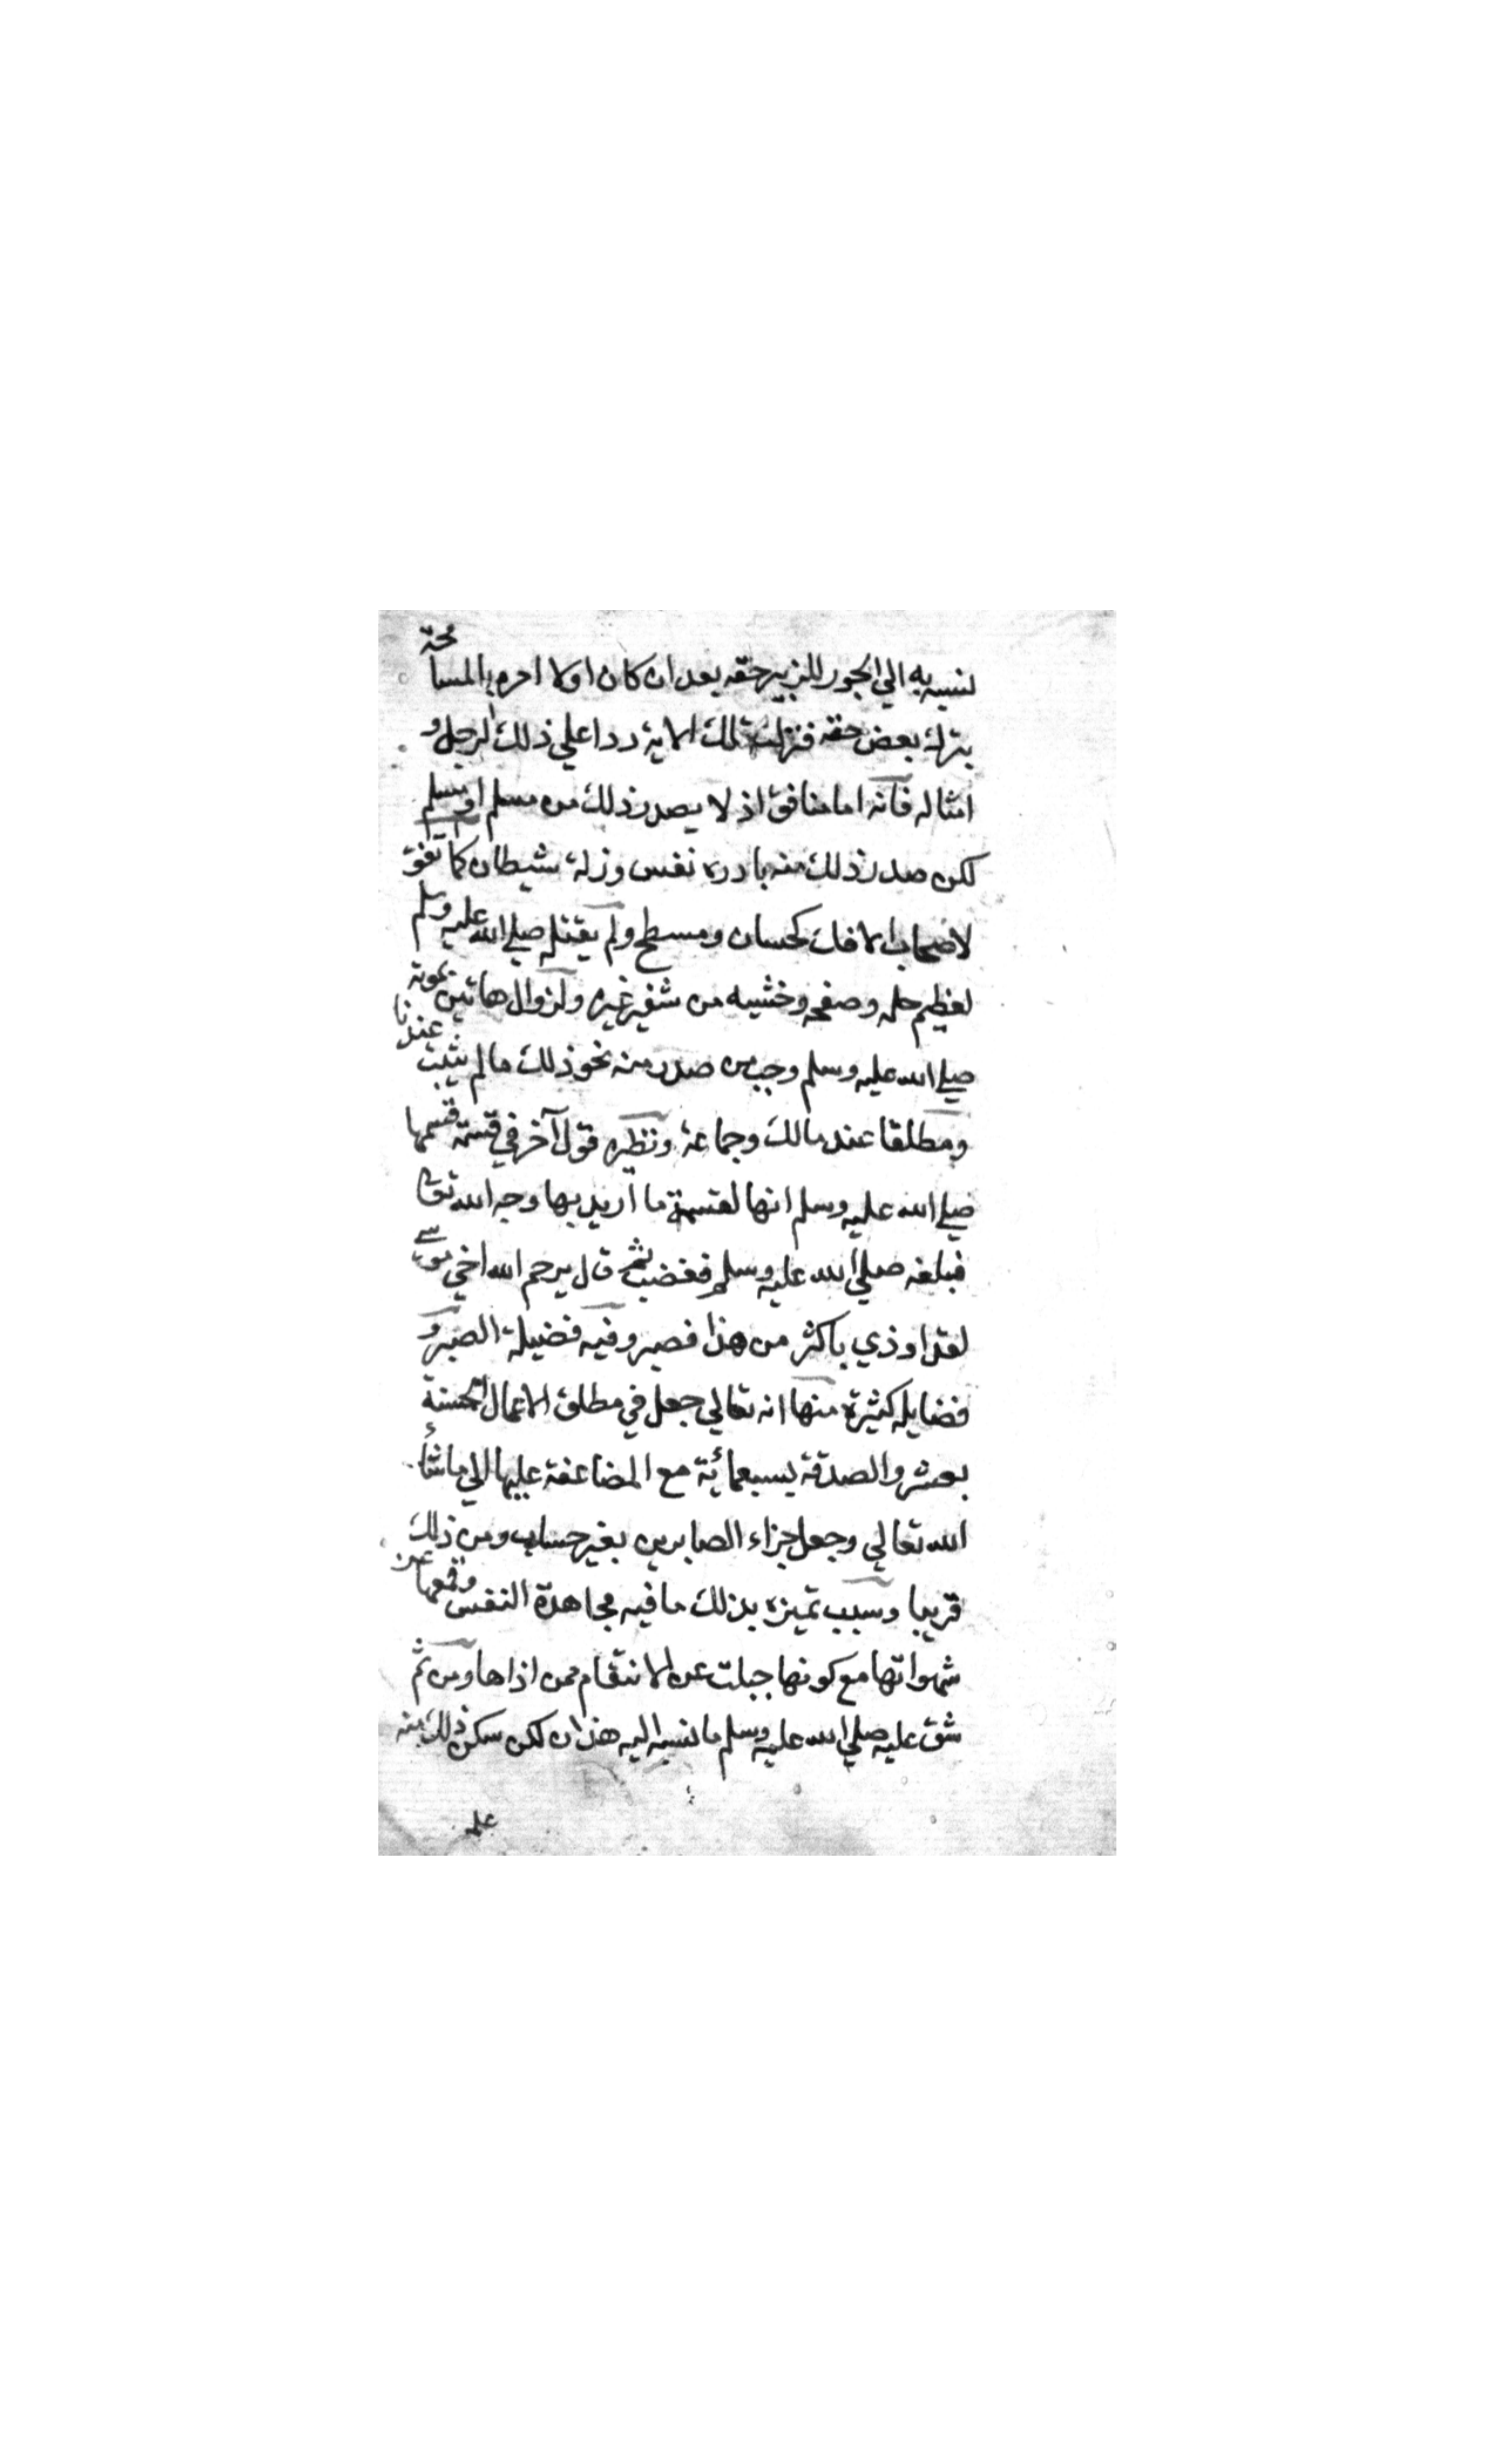 لنسبه به الي الجور للزبير حقه بعد ان كان اولا امره بالمسامحة
بترك بعض حقه فنزلت تلك الاية ردا علي ذلك الرجل و
امثاله فانه اما منافق اذ لا يصدر ذلك من مسلم او مسلم
لكن صدر ذلك منه بادرة نفس وزلة شيطان كما اتفق
لاصحاب الافك كحسان ومسطح ولم يقتله صلي الله عليه وسلم
لعظيم حلمه وصفحه وخشيه من تنفير غيره ولزوال هاتين بموته
صلي الله عليه وسلم وجب من صدر منه نحو ذلك ما لم يثبت عندنا
ومطلقا عند مالك وجماعة ونظيره قول آخر في قسمة قسمها
صلي الله عليه وسلم انها لقسمة ما اريد بها وجه الله تعا
فبلغه صلي الله عليه وسلم فغضب ثم قال يرحم الله اخي موسي
لقد اوذي باكثر من هذا فصبر وفيه فضيلة الصبر و
فضايله كثيرة منها انه تعالي جعل في مطلق الاعمال الحسنة
بعشر والصدقة بسبعمائة مع المضاعفة عليها الي ما شاء
الله تعالي وجعل جزاء الصابرين بغير حساب ومن ذلك
قريبا وسبب تميزه بذلك ما فيه مجاهدة النفس وقمعها عن
شهواتها مع كونها جبلت عن الانتقام ممن اذاها ومن ثم
شق عليه صلي الله عليه وسلم ما نسبه اليه هذان لكن سكن ذلك منه
علمه